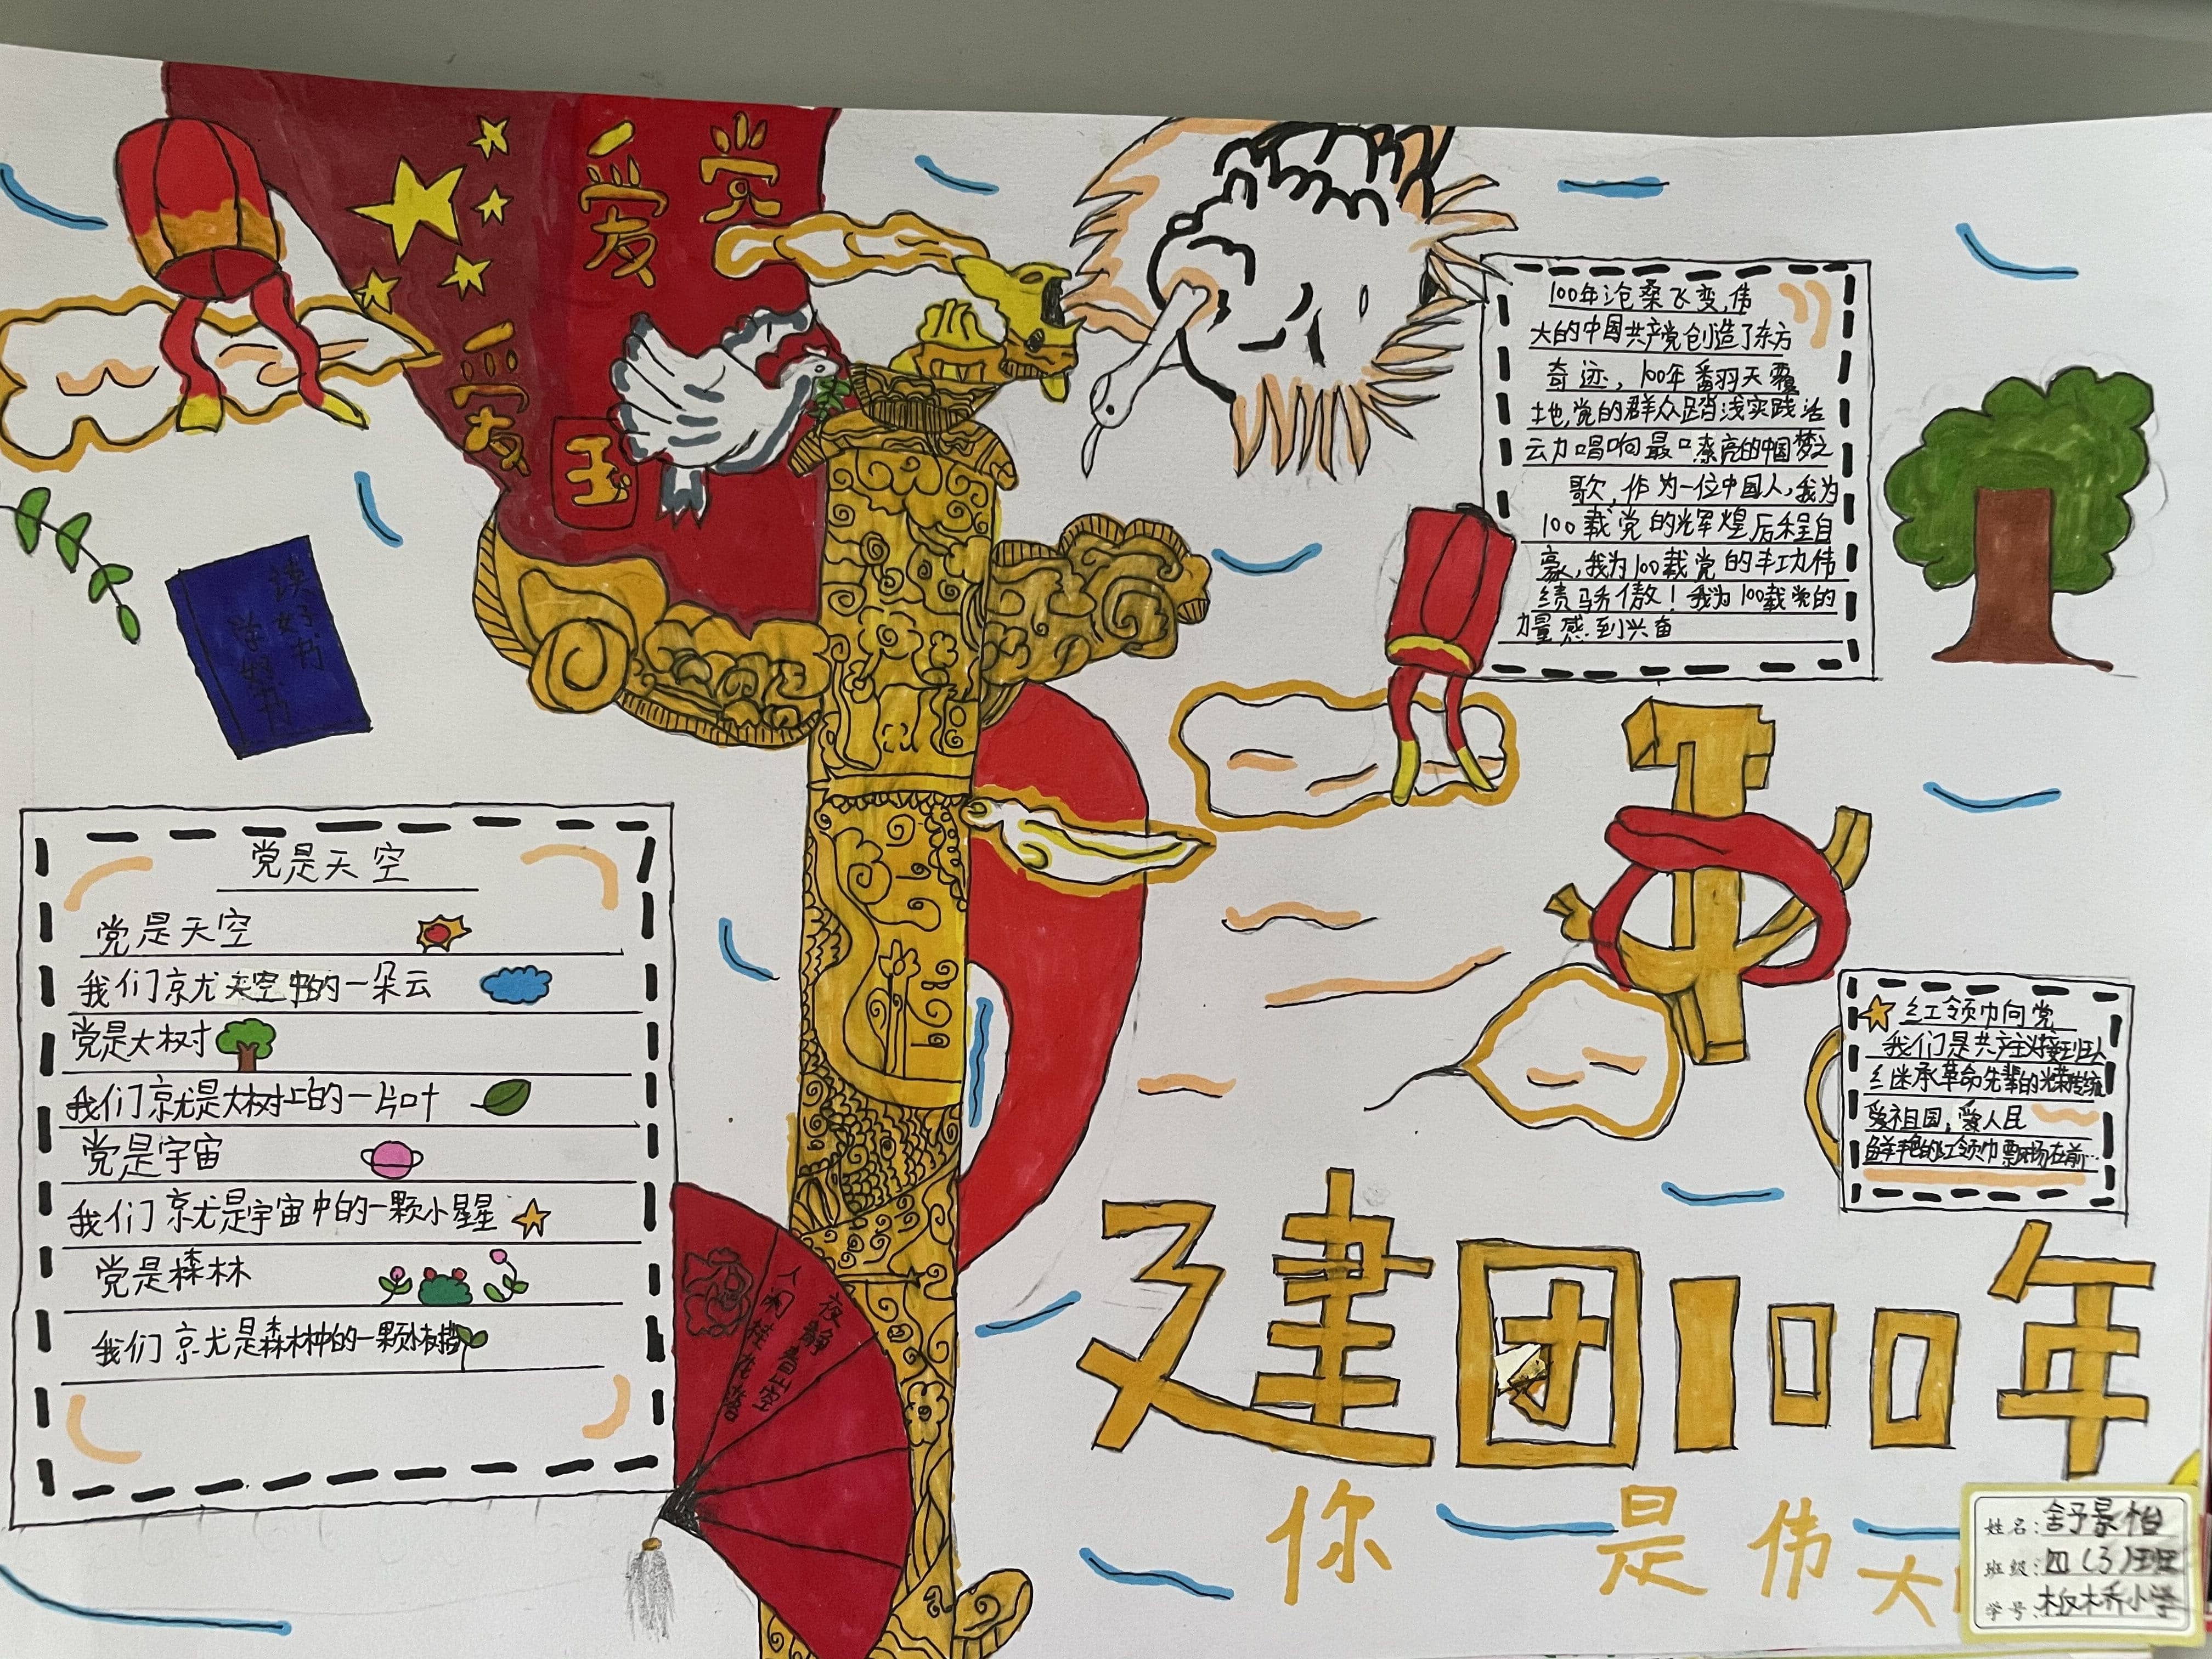 爱党
爱
国
读好书
学好书
100年沧桑飞变,伟
大的中国共产党创造了东方
奇迹，100年翻天覆
地,党的群众路浅实践活
云力唱响最嘹亮的中国梦之
歌,作为一位中国人,我为
100载党的辉煌历程自
豪,我为100载党的丰功伟
绩骄傲！我为100载党的
力量感到兴奋
党是天空
党是天空
我们就天空中的一朵云
党是大树
我们就是大树上的一片叶
党是宇宙
我们就是宇宙中的一颗小星星
党是森林
我们就是森林种的一颗小树苗
人闲桂花落
夜静春山空
红领巾向党
我们是共产主义接班人
继承革命先辈的光荣传统
爱祖国，爱人民
鲜艳的红领巾飘扬在前…
建团100年
你是伟大
姓名:舒景怡
班级:四(3)班
学号:板桥小学